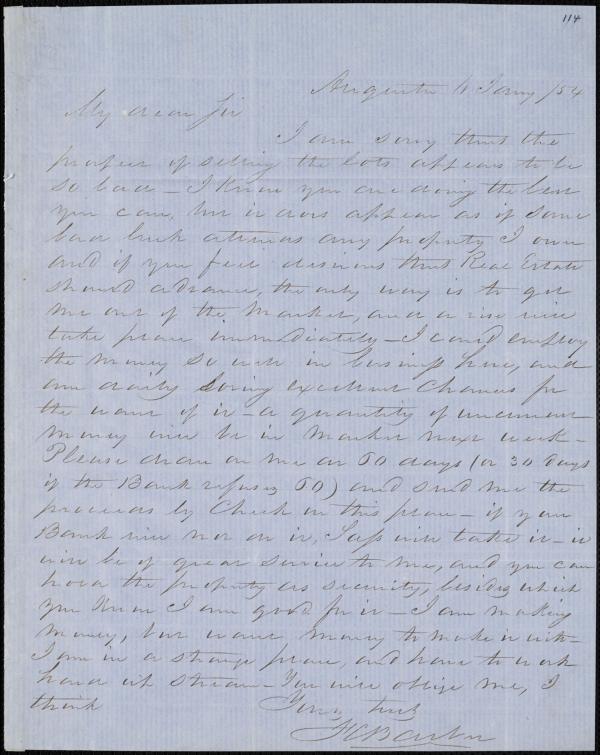 114
Augusta 11 Jany /54
My dear Sir
I am sorry that the
prospect of selling the lots appears to be
so bad – I know you are doing the best
you can, but it does appear as if some
bad luck attends any property I own
and if you feel desirous that Real Estate
should advance, the only way is to get
me out of the market, and a rise will
take place immediately – I could employ
the money so well in business here, and
am daily losing excellent chances for
the want of it – a quantity of uncurrent
money will be in market next week –
Please draw on me at 60 days (or 30 days
if the Bank refuses 60) and send me the
proceeds by Check on this place – if your
Bank will not do it, will take it – it
will be of great service to me, and you can
hold the property as security, besides which
you know I am good for it – I am making
money, but want money to make it with –
I am in a strange place, and have to work
hard up stream – You will oblige me, I
think
Yours truly